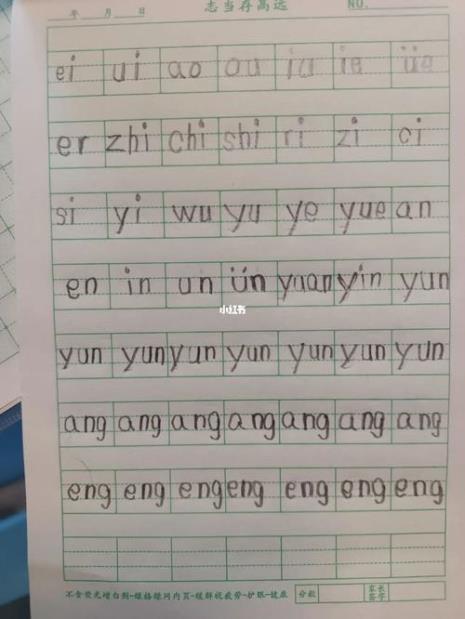 年 月 日 志当存高远 NO.
ei ui ao ou iu ie üe
er zhi chi shi ri zi ci
si yi wu yu ye yue an
en in un ün yuan yin yun
小红书
yun yun yun yun yun yun yun
ang ang ang ang ang ang ang
eng eng eng eng eng eng eng
不含荧光增白剂-绿格绿问内页-缓解视疲劳-护眼-健康 分数 家长签字